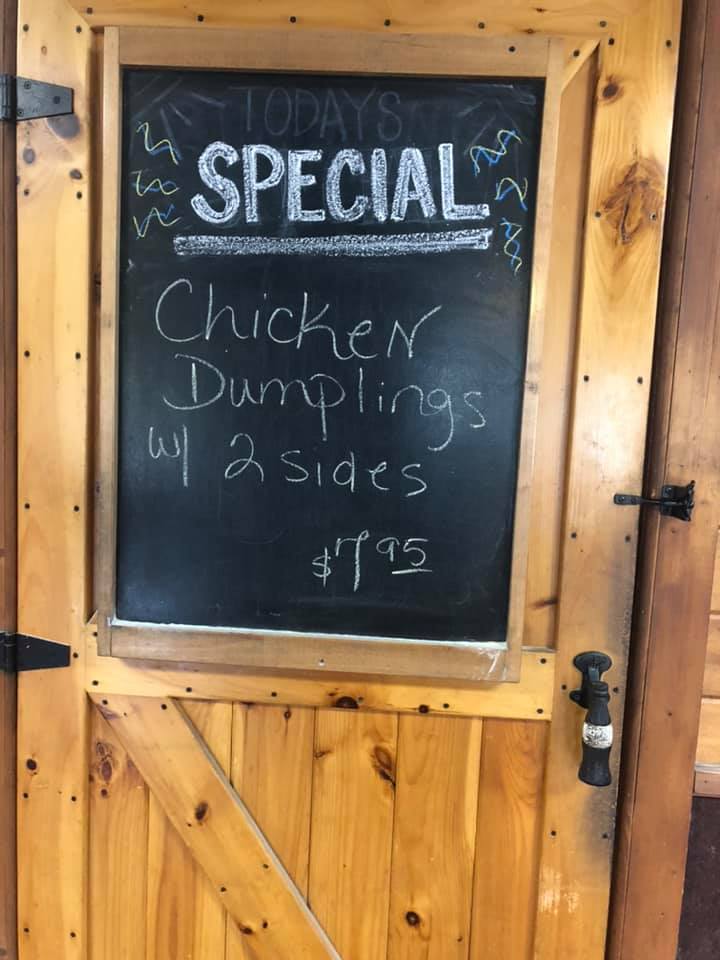 TODAYS
SPECIAL
Chicken
Dumplings
w/ 2 sides
$7 95